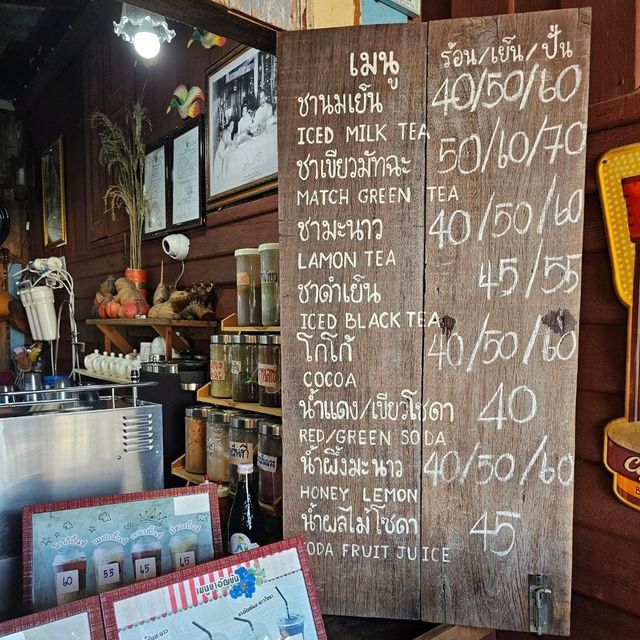 เมนู ร้อน/เย็น/ปั่น
ชานมเย็น 40/50/60
ICED MILK TEA
ชาเขียวมัทฉะ 50/60/70
MATCH GREEN TEA
ชามะนาว 40/50/60
LAMON TEA
ชาดำเย็น 45/55
ICED BLACK TEA
โกโก้ 40/50/60
COCOA
น้ำแดง/เขียวโซดา 40
RED/GREEN SODA
น้ำผึ้งมะนาว 40/50/60
HONEY LEMON
น้ำผลไม้โซดา 45
SODA FRUIT JUICE
60 55 45 65
เมนูชาอัญชัน